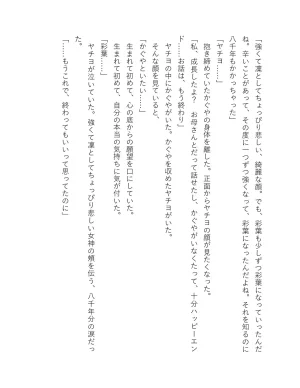 「強くて凛としてちょっぴり悲しい、綺麗な顔。でも、彩葉も少しずつ彩葉になっていったんだ
ね。辛いことがあって、その度に一つずつ強くなって、彩葉になったんだよね。それを知るのに
八千年もかかっちゃった」
「ヤチヨ……」
抱き締めていたかぐやの身体を離した。正面からヤチヨの顔が見たくなった。
「私、成長したよ？　お母さんとだって話せたし、かぐやがいなくたって、十分ハッピーエン
ド　お話は、もう終わり」
ヤチヨの中にかぐやがいた。かぐやを収めたヤチヨがいた。
そんな顔を見ていると、
「かぐやといたい……」
生まれて初めて、心の底からの願望を口にしていた。
生まれて初めて、自分の本当の気持ちに気が付いた。
「彩葉……」
ヤチヨが泣いていた。強くて凛としてちょっぴり悲しい女神の頬を伝う、八千年分の涙だっ
た。
「……もうこれで、終わってもいいって思ってたのに」